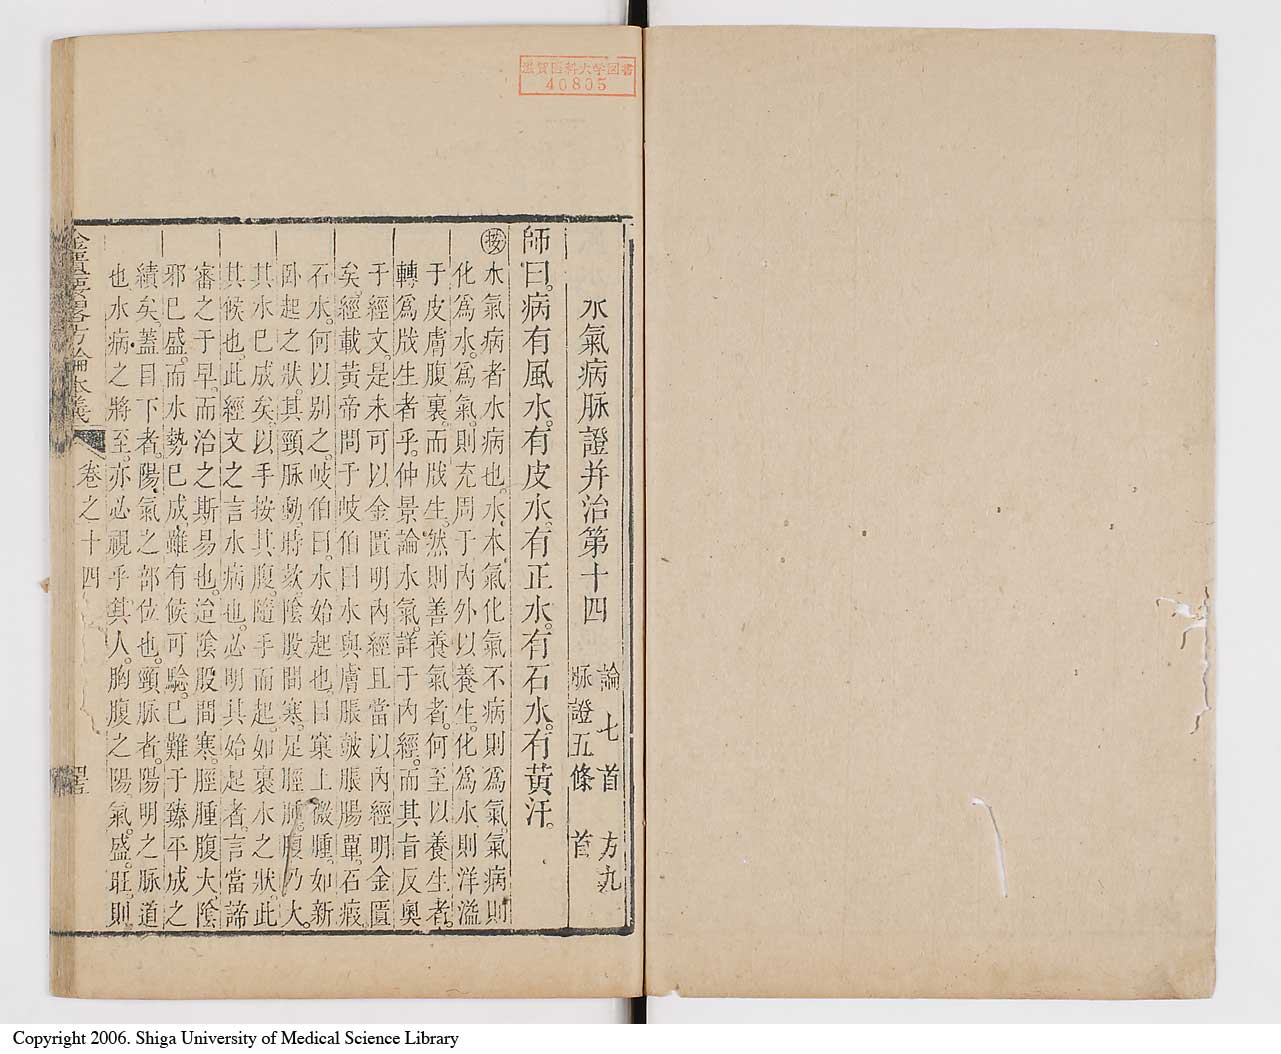 滋賀医科大学図書
40805
水氣病脉證并治第十四 論七首 方九首
脉證五條
師曰。病有風水。有皮水。有正水。有石水。有黃汗。
按水氣病者水病也。水本氣化氣不病則爲氣。氣病則
化爲水。爲氣。則充周于內外以養生。化爲水則洋溢
于皮膚腹裏。而戕生。然則善養氣者。何至以養生者。
轉爲戕生者乎。仲景論水氣。詳于內經。而其旨反奧
于經文。是未可以金匱明內經且當以內經明金匱
矣。經載黃帝問于岐伯曰水與膚脹皷脹腸覃。石瘕。
石水。何以别之。岐伯曰。水始起也。目窠上微腫。如新
卧起之狀。其頸脉動。時欬。陰股間寒。足脛腫。腹乃大。
其水已成矣。以手按其腹。隨手而起。如裹水之狀。此
其候也。此經文之言水病也。必明其始起者。言當諦
審之于早。而治之斯易也。迨陰股間寒。脛腫腹大。陰
邪已盛。而水勢已成。雖有候可驗。已難于臻平成之
績矣。蓋目下者。陽氣之部位也。頸脉者。陽明之脉道
也水病之將至。亦必視乎其人。胸腹之陽氣盛。旺。則
金匱要畧方論本義 卷之十四